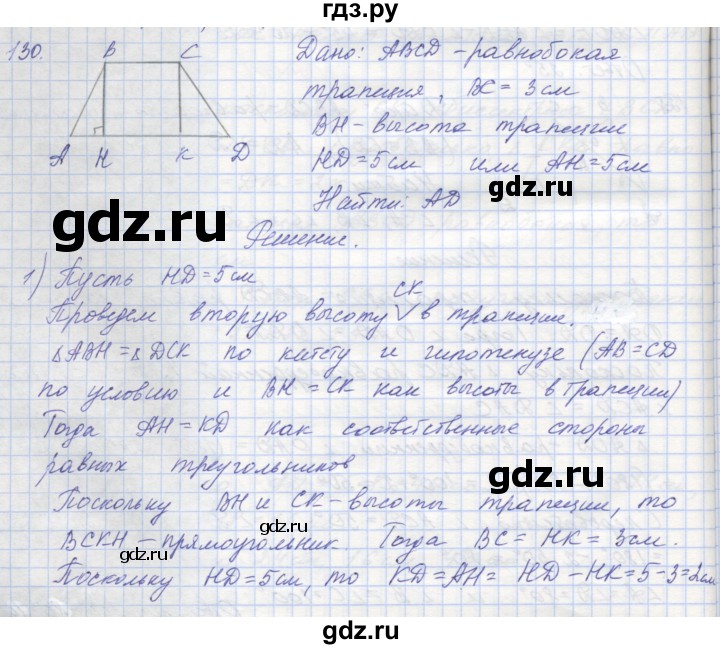 гдз.ру
130.
B C
A H K D
Дано: ABCD - равнобокая
трапеция, BC = 3 см
BH - высота трапеции
HD = 5 см или AH = 5 см
Найти: AD
gdz.ru
gdz.ru
Решение.
1) Пусть HD = 5 см
CK
Проведем вторую высоту V в трапеции.
△ABH = △DCK по катету и гипотенузе (AB = CD
по условию и BH = CK как высоты в трапеции)
Тогда AH = KD как соответственные стороны
равных треугольников
gdz.ru
Поскольку BH и CK - высоты трапеции, то
BCKH - прямоугольник. Тогда BC = HK = 3 см.
gdz.ru
gdz.ru
Поскольку HD = 5 см, то KD = AH = HD - HK = 5 - 3 = 2 см
gdz.ru